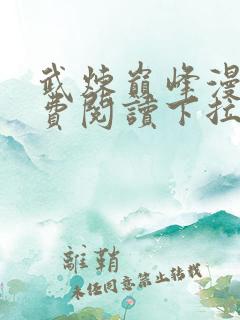 武炼巅峰漫
费阅讀下拉
離鞘
未经同意禁止转载